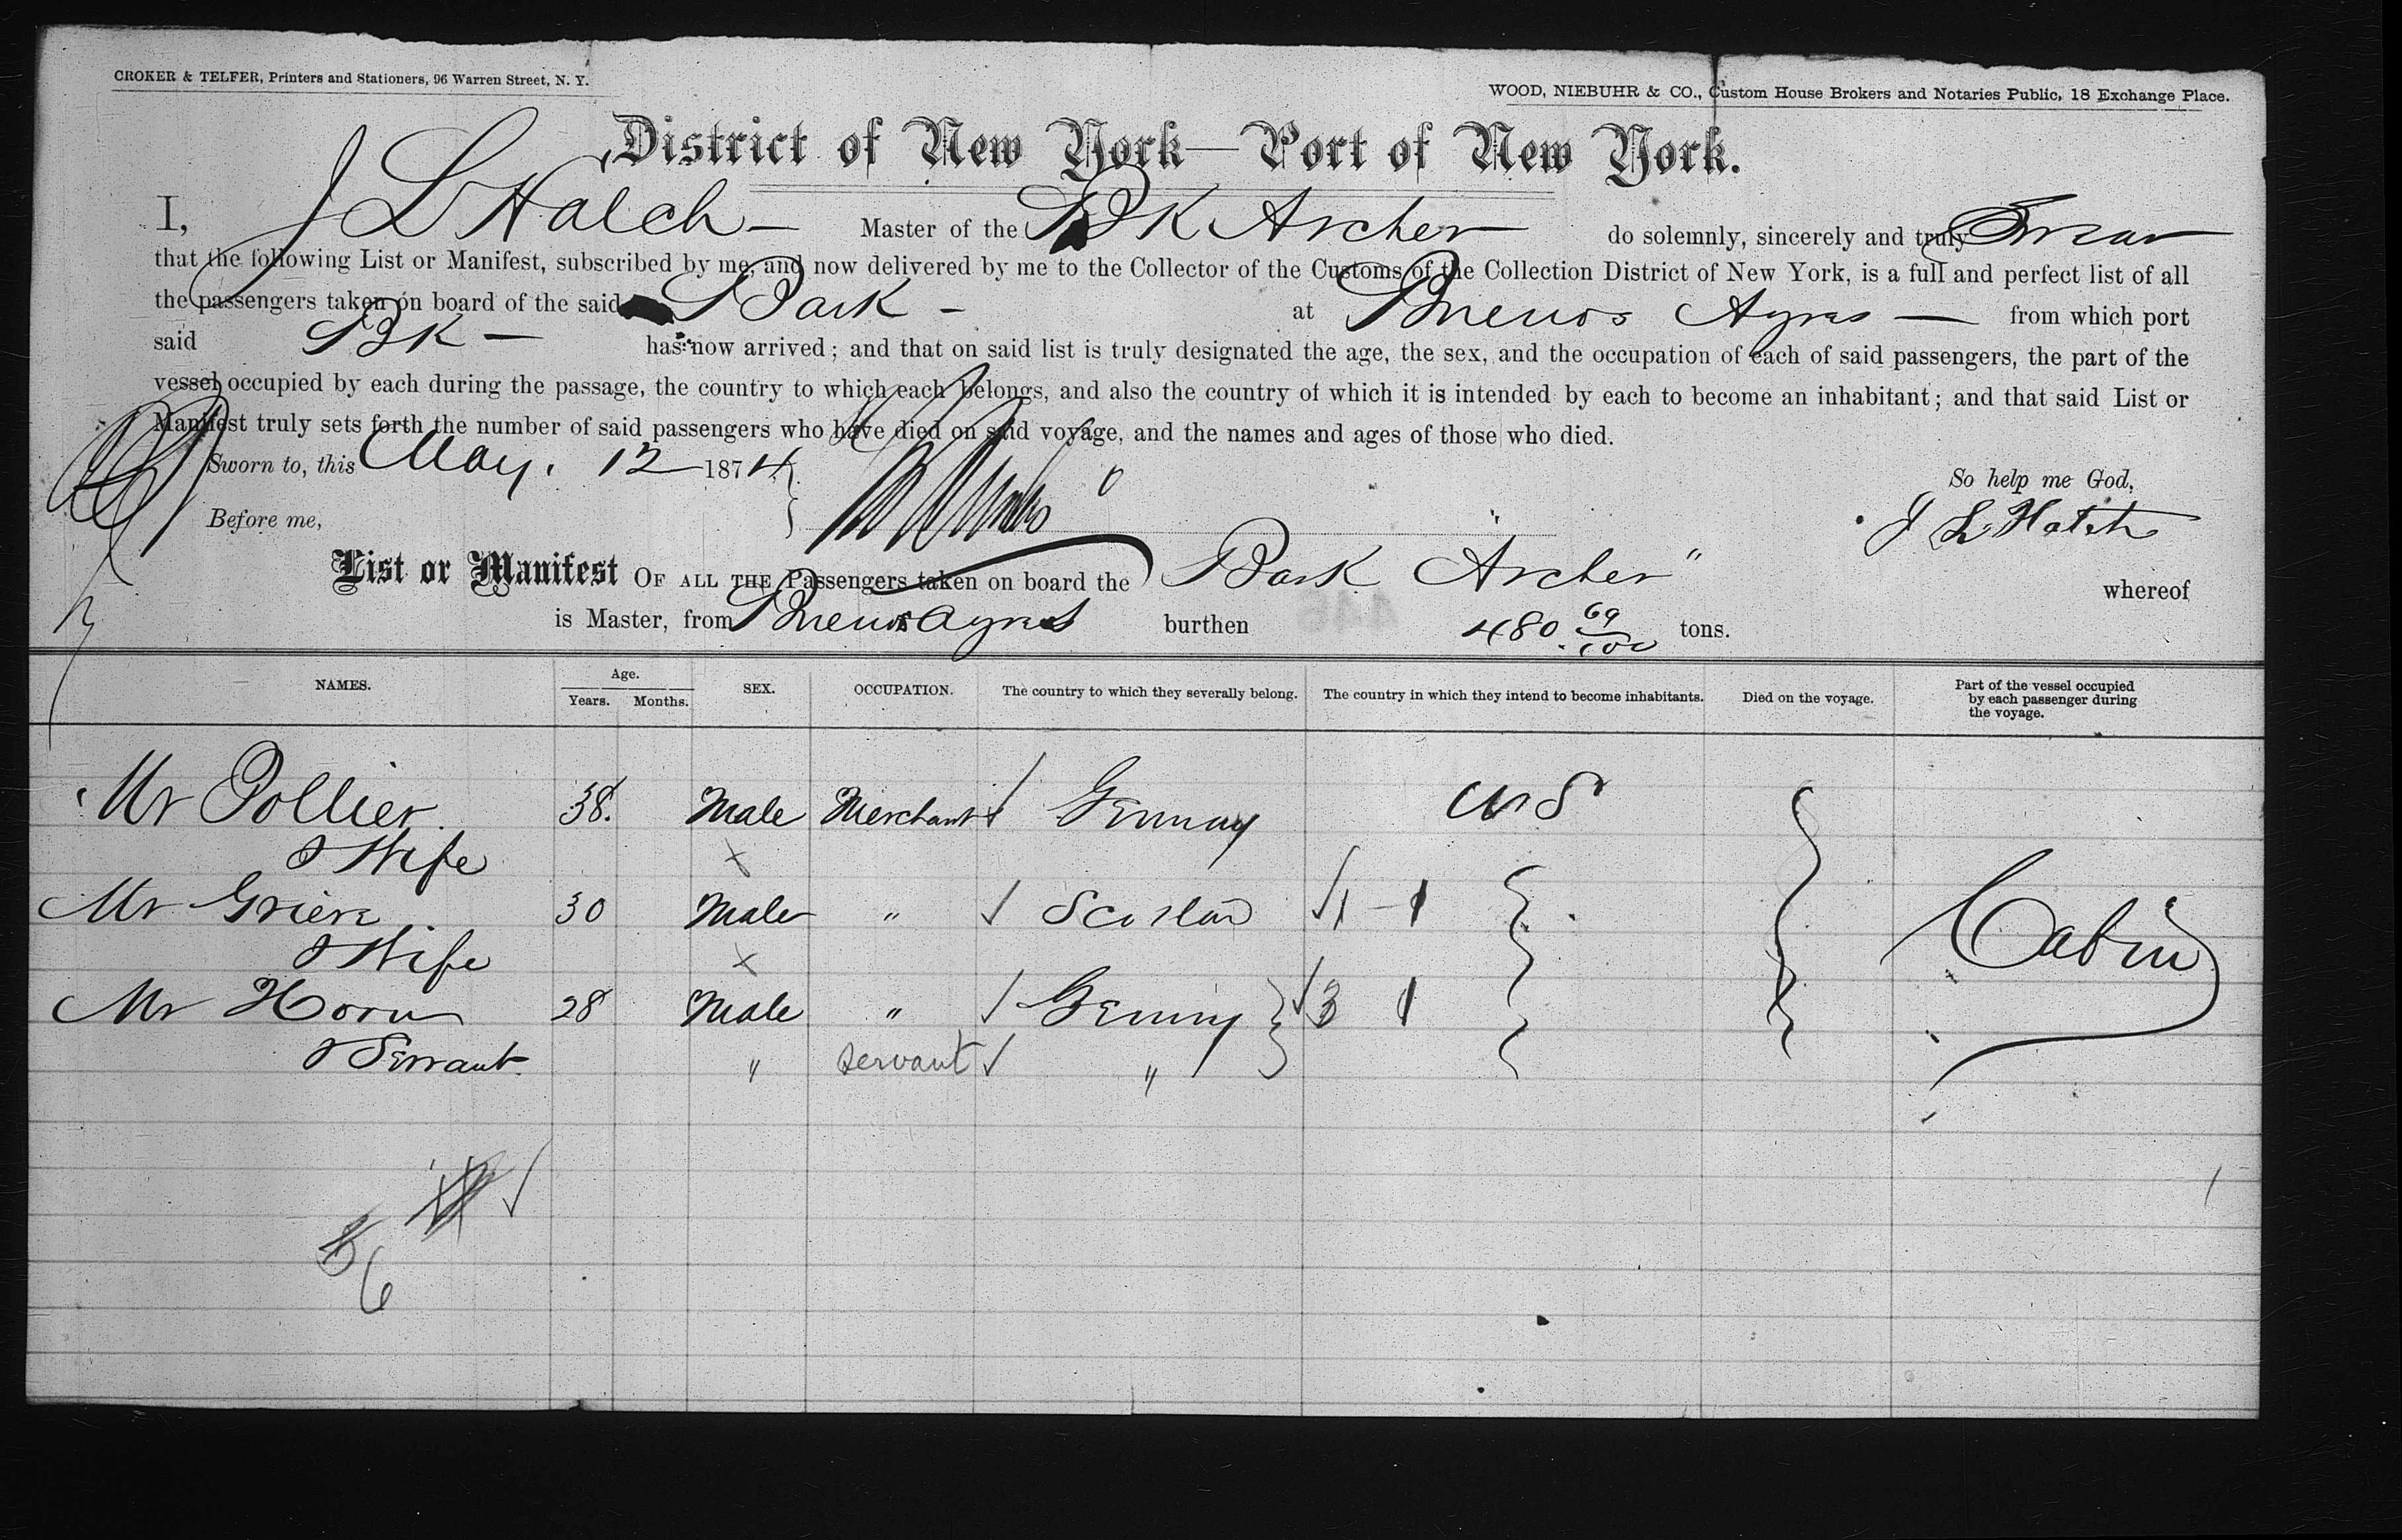 CROKER & TELFER, Printers and Stationers, 96 Warren Street, N. Y.
WOOD, NIEBUHR & CO., Custom House Brokers and Notaries Public, 18 Exchange Place.
District of New York—Port of New York.
I, J L Hatch — Master of the BK Archer do solemnly, sincerely and truly Swear
that the following List or Manifest, subscribed by me, and now delivered by me to the Collector of the Customs of the Collection District of New York, is a full and perfect list of all
the passengers taken on board of the said Bark - at Buenos Ayres — from which port
said BK — has now arrived; and that on said list is truly designated the age, the sex, and the occupation of each of said passengers, the part of the
vessel occupied by each during the passage, the country to which each belongs, and also the country of which it is intended by each to become an inhabitant; and that said List or
Manifest truly sets forth the number of said passengers who have died on said voyage, and the names and ages of those who died.
Sworn to, this May. 12 1874
So help me God,
Before me,
J L Hatch
List or Manifest OF ALL THE Passengers taken on board the Bark Archer " whereof
is Master, from Buenos Ayres burthen 480. 69/100 tons.
NAMES. Age. Years. Months. SEX. OCCUPATION. The country to which they severally belong. The country in which they intend to become inhabitants. Died on the voyage. Part of the vessel occupied by each passenger during the voyage.
Mr Pollier 38. Male Merchant Germay U S
& Wife
Mr Grier 30 Male " Scotlan 1 - 1 Cabin
& Wife
Mr Horn 28 Male " Germy 3 1
& Servant " servant "
6